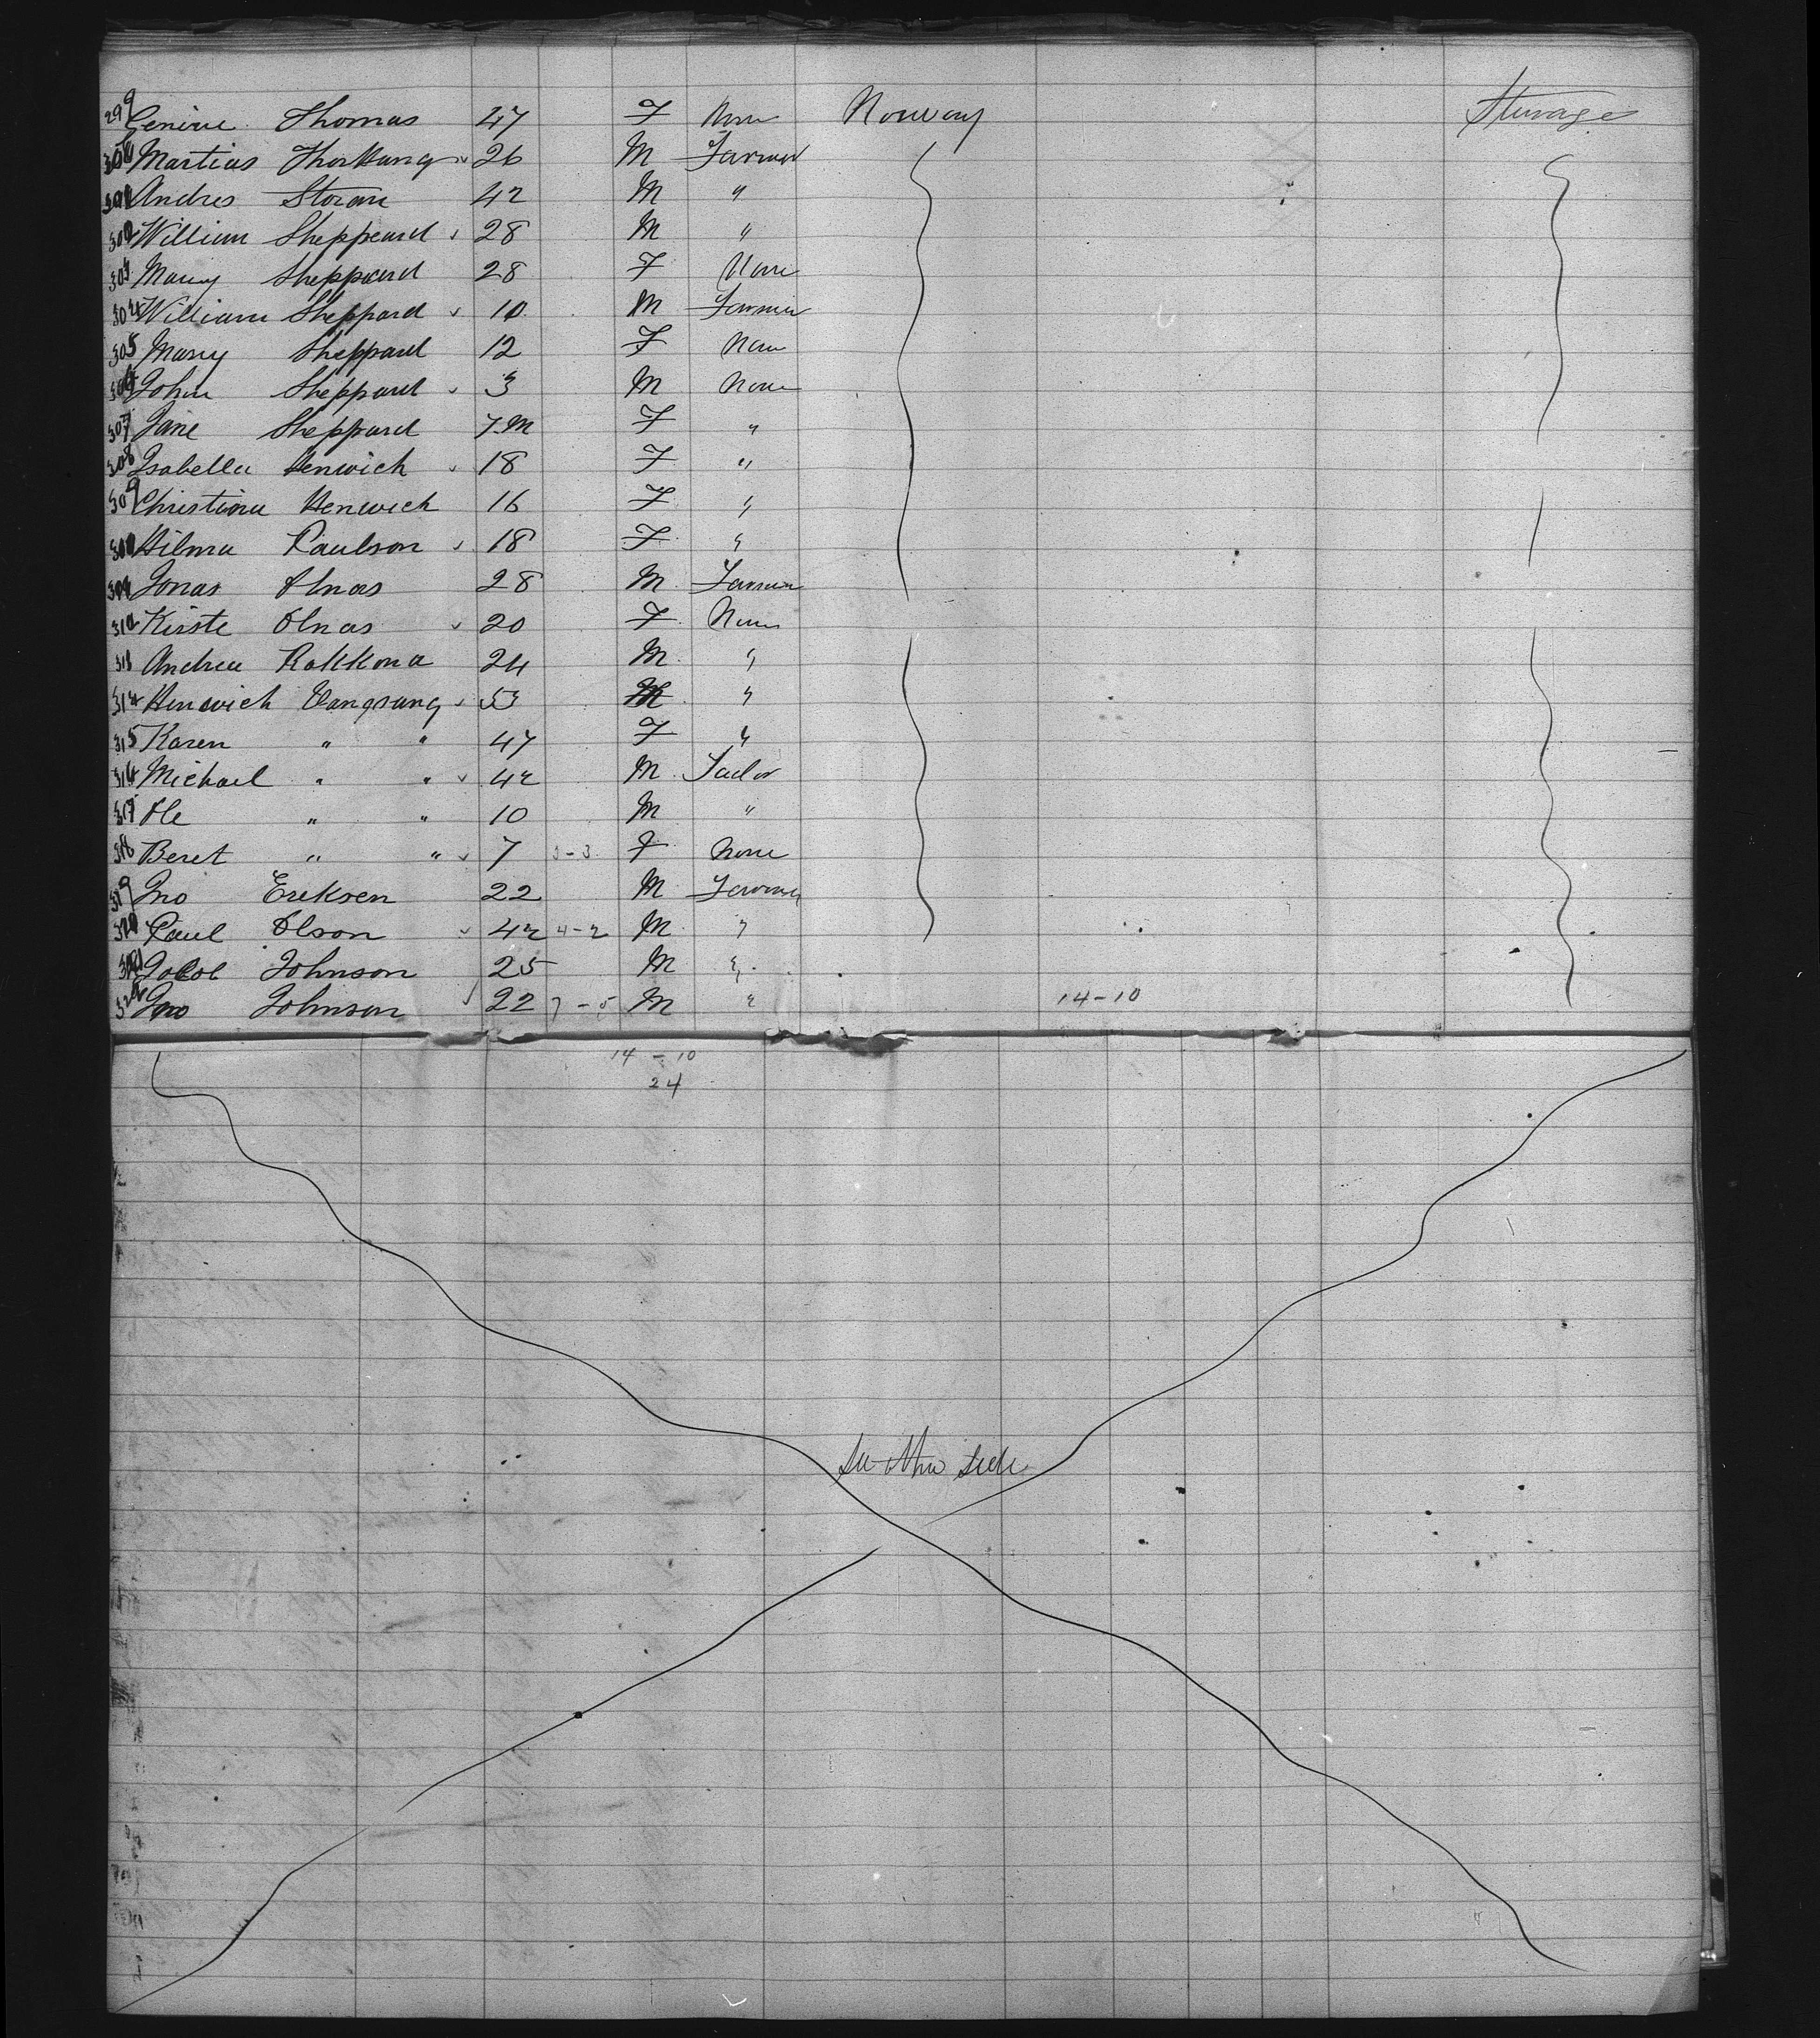 299 Genivie Thomas 47 F None Norway Sturage
300 Martius 26 M Farmer
301 Andres Storan 42 M "
302 William Sheppeard 28 M "
303 Mary Sheppard 28 F None
304 William Sheppard 10 M Farmer
305 Mary Sheppard 12 F None
306 John Sheppard 3 M None
307 Jane Sheppard 7 M F "
308 Isabella Henwich 18 F "
309 Christiana Henwich 16 F "
310 Hilma Paulson 18 F "
311 Jonas Olnas 28 M Farmer
312 Kirste Olnas 20 F None
313 Andrea Rokkona 24 M "
314 Henwich Vangsung 53 M "
315 Karen " " 47 F "
316 Michael " " 42 M Tailor
317 Ole " " 10 M "
318 Beret " " 7 3-3 F None
319 Jno Eriksen 22 M Farmer
320 Paul Olson 42 4-2 M "
321 Johnson 25 M "
322 Jno Johnson 22 7-5 M " 14-10
14-10
24
See other side